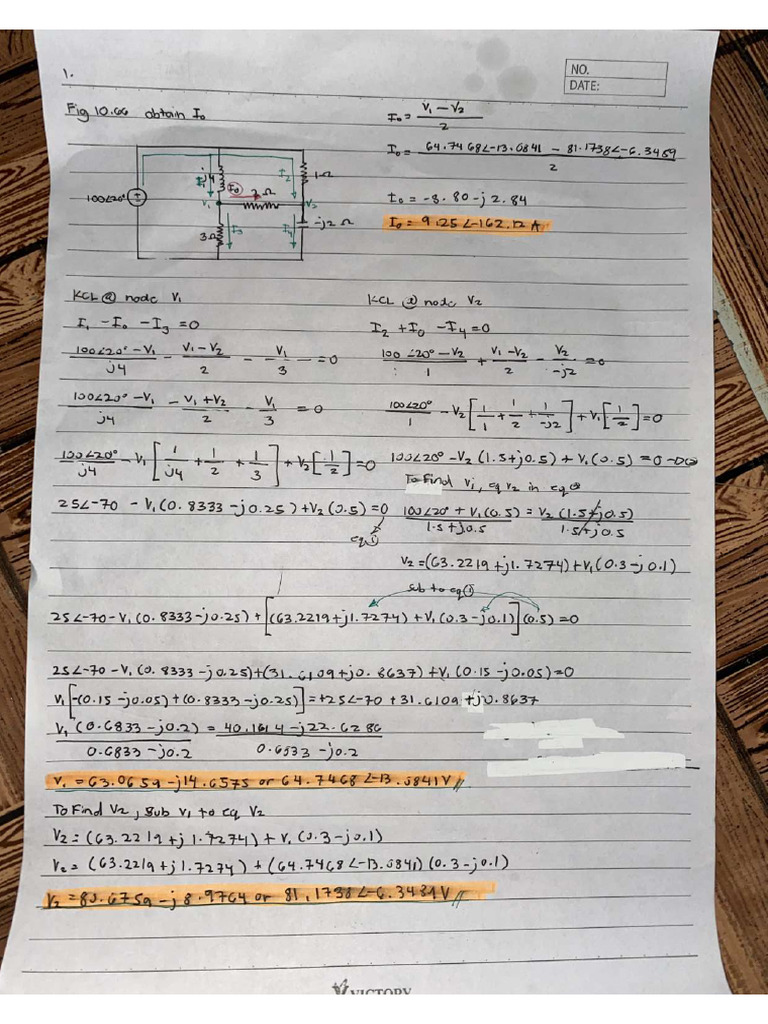 1.
NO.
DATE:
Fig 10.66 obtain I₀
I₀ = (V₁ - V₂)/2
I₀ = (64.7468∠-13.0841 - 81.1738∠-6.3489)/2
I₀ = -8.80 - j2.84
I₀ = 9.25∠-162.12 A
100∠20°
j4
I₁
I₀
2Ω
I₂
1Ω
V₁
V₂
3Ω
I₃
I₄
-j2Ω
KCL @ node V₁
I₁ - I₀ - I₃ = 0
(100∠20° - V₁)/j4 - (V₁ - V₂)/2 - V₁/3 = 0
(100∠20° - V₁)/j4 - (V₁ + V₂)/2 - V₁/3 = 0
100∠20°/j4 - V₁[1/j4 + 1/2 + 1/3] + V₂[1/2] = 0
25∠-70 - V₁(0.8333 - j0.25) + V₂(0.5) = 0
eq ①
KCL @ node V₂
I₂ + I₀ - I₄ = 0
(100∠20° - V₂)/1 + (V₁ - V₂)/2 - V₂/-j2 = 0
100∠20°/1 - V₂[1/1 + 1/2 + 1/-j2] + V₁[1/2] = 0
100∠20° - V₂(1.5 + j0.5) + V₁(0.5) = 0
To Find V₁, eq V₂ in eq
(100∠20° + V₁(0.5))/(1.5 + j0.5) = V₂(1.5 + j0.5)/(1.5 + j0.5)
V₂ = (63.2219 + j1.7274) + V₁(0.3 - j0.1)
sub to eq ①
25∠-70 - V₁(0.8333 - j0.25) + [(63.2219 + j1.7274) + V₁(0.3 - j0.1)](0.5) = 0
25∠-70 - V₁(0.8333 - j0.25) + (31.6109 + j0.8637) + V₁(0.15 - j0.05) = 0
V₁[-(0.15 - j0.05) + (0.8333 - j0.25)] = +25∠-70 + 31.6109 + j0.8637
V₁(0.6833 - j0.2)/(0.6833 - j0.2) = (40.1614 - j22.6286)/(0.6533 - j0.2)
V₁ = 63.0659 - j14.6575 or 64.7468∠-13.0841 V
To Find V₂, sub V₁ to eq V₂
V₂ = (63.2219 + j1.7274) + V₁(0.3 - j0.1)
V₂ = (63.2219 + j1.7274) + (64.7468∠-13.0841)(0.3 - j0.1)
V₂ = 80.6759 - j8.9764 or 81.1738∠-6.3489 V
VICTORY